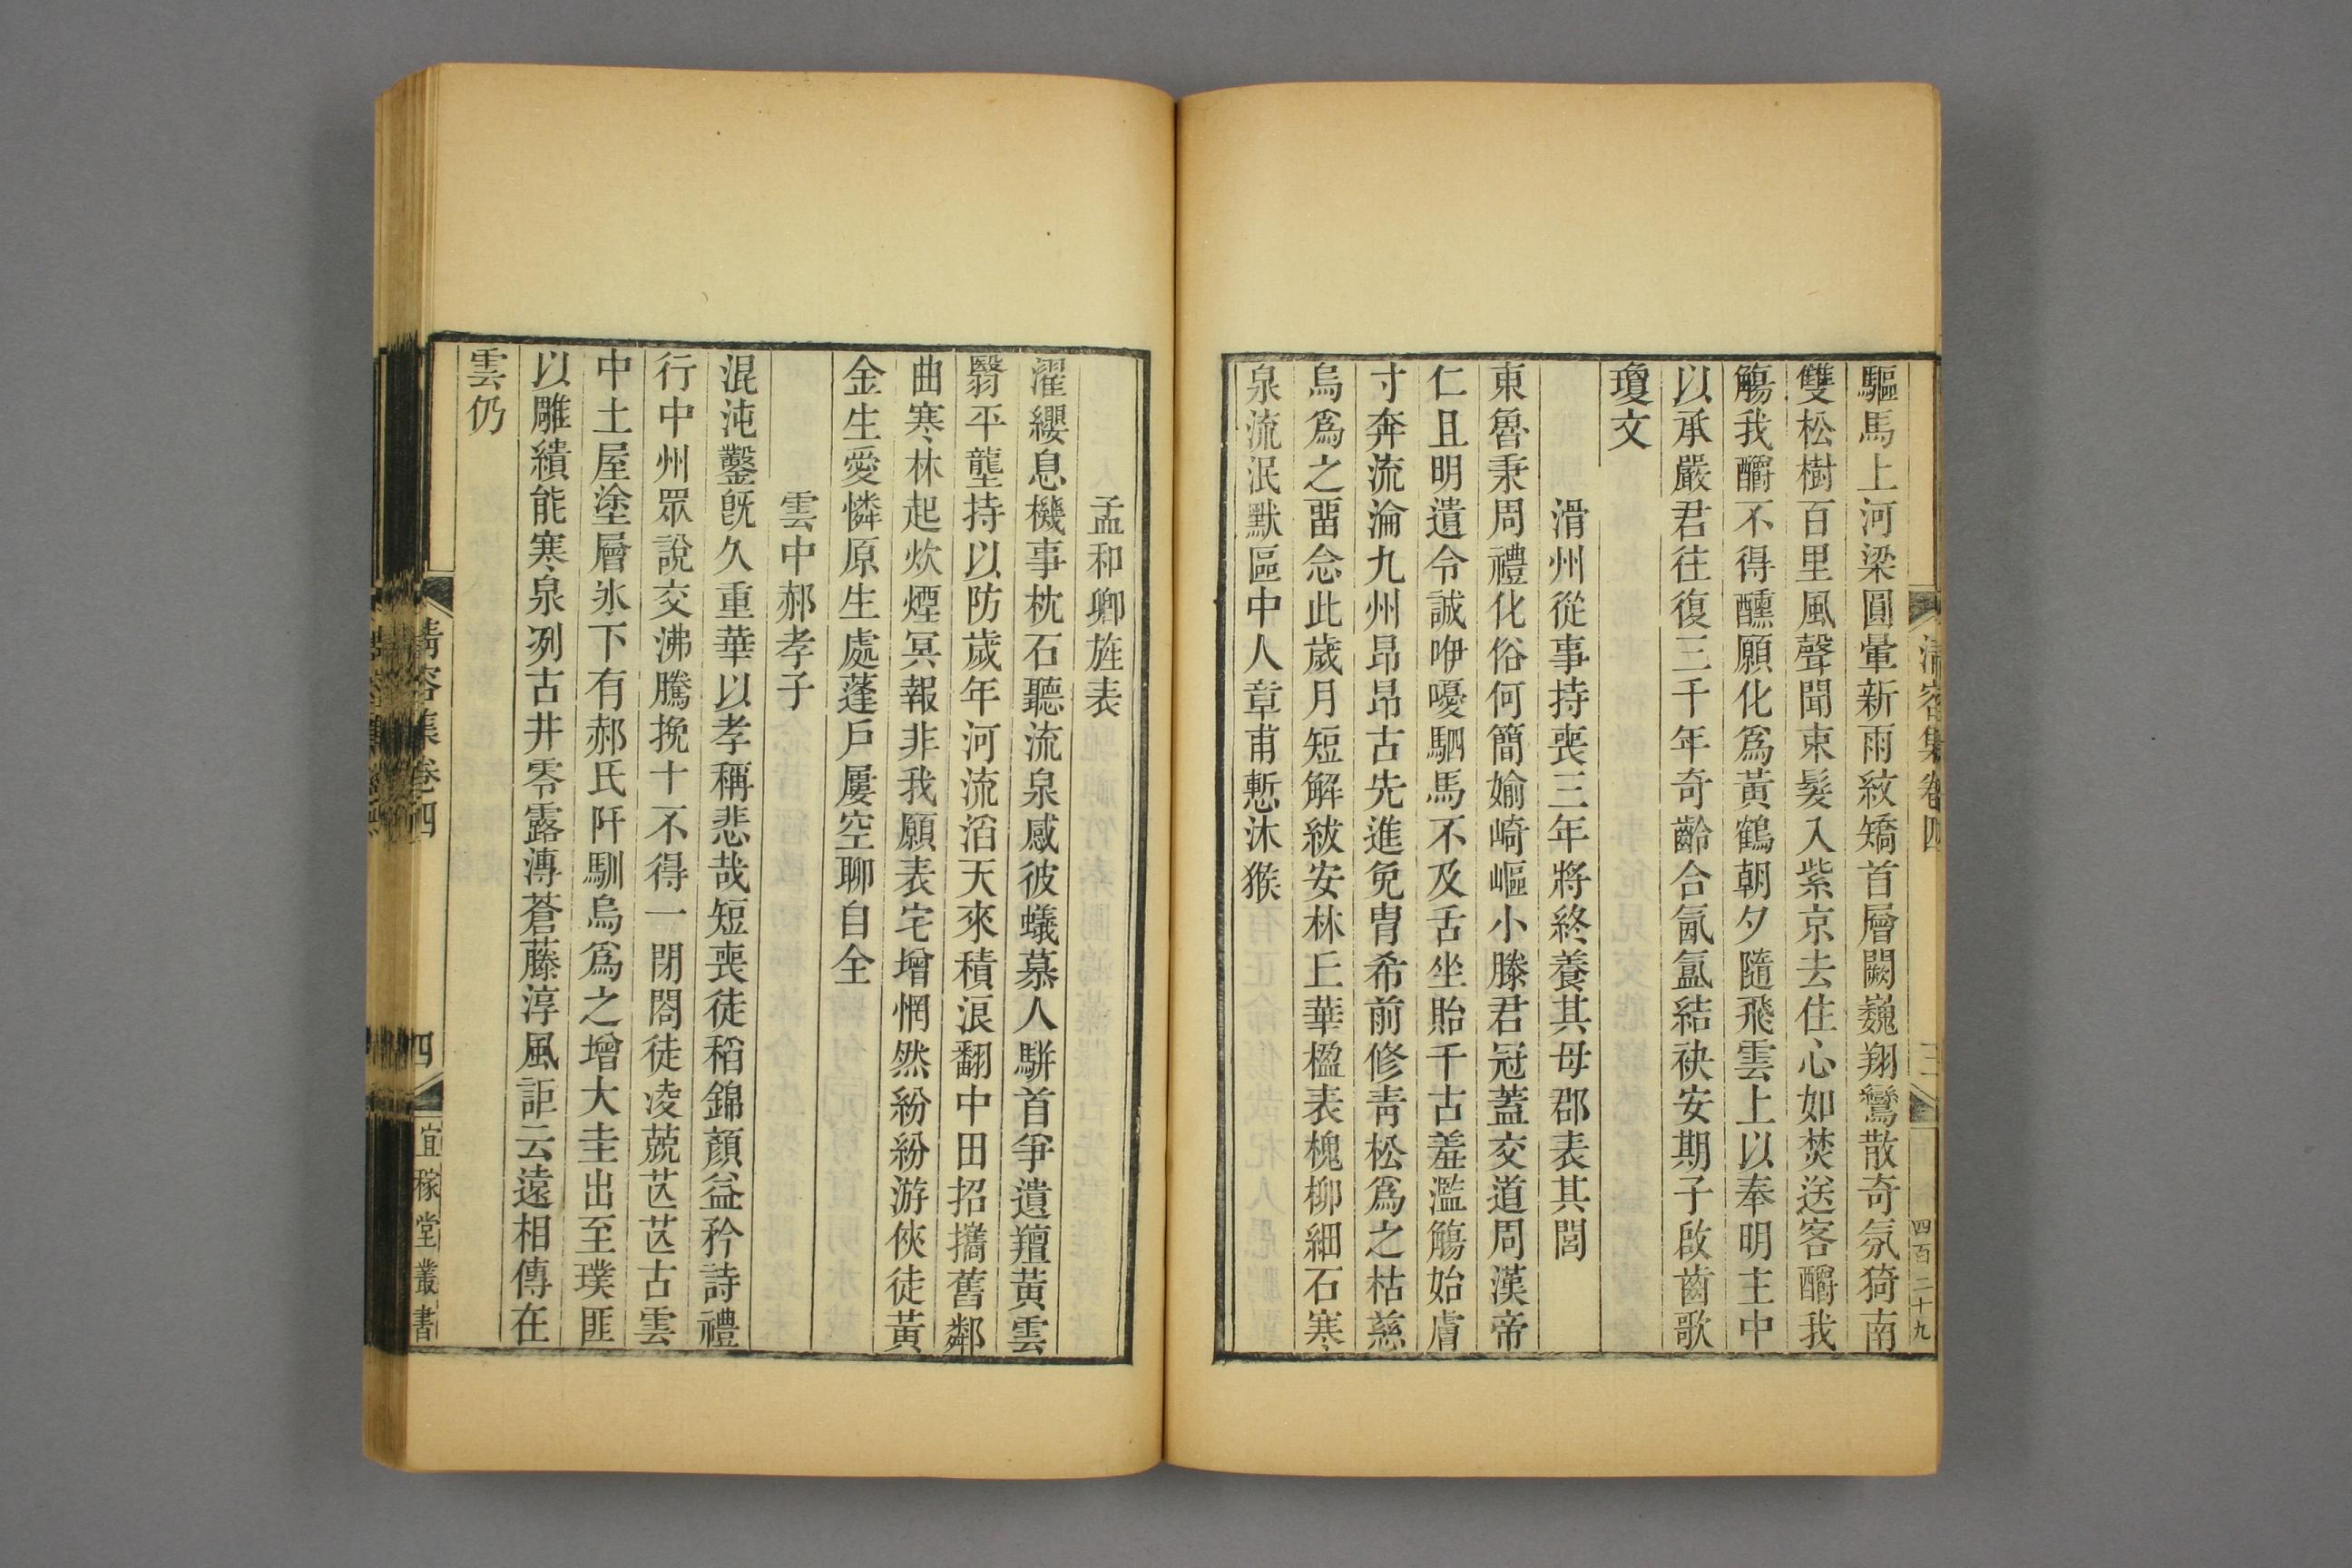 清容集卷四
三
四百二十九
驅馬上河梁圓暈新雨紋矯首層闕巍翔鸞散奇氛猗南
雙松樹百里風聲聞束髮入紫京去住心如焚送客釂我
觴我釂不得醺願化爲黃鶴朝夕隨飛雲上以奉明主中
以承嚴君往復三千年奇齡合氤氳結袂安期子啟齒歌
瓊文
滑州從事持喪三年將終養其母郡表其閭
東魯秉周禮化俗何簡婾崎嶇小滕君冠蓋交道周漢帝
仁且明遺令誠咿嚘駟馬不及舌坐貽千古羞濫觴始膚
寸奔流淪九州昂昂古先進免胄希前修靑松爲之枯慈
烏爲之畱念此歲月短解紱安林丘華楹表槐柳細石寒
泉流泯默區中人章甫慙沐猴
孟和卿旌表
濯纓息機事枕石聽流泉感彼蟻慕人駢首爭遺羶黃雲
翳平壟持以防歲年河流滔天來積浪翻中田招攜舊鄰
曲寒林起炊煙冥報非我願表宅增惘然紛紛游俠徒黃
金生愛憐原生處蓬戶屢空聊自全
雲中郝孝子
混沌鑿旣久重華以孝稱悲哉短喪徒稻錦顏益矜詩禮
行中州眾說交沸騰挽十不得一閉閤徒凌兢茫茫古雲
中土屋塗層氷下有郝氏阡馴烏爲之增大圭出至璞匪
以雕繢能寒泉冽古井零露漙蒼藤淳風詎云遠相傳在
雲仍
清容集卷四
四
宜稼堂叢書